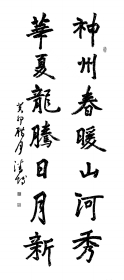 神州春暖山河秀
華夏龍騰日月新
癸卯